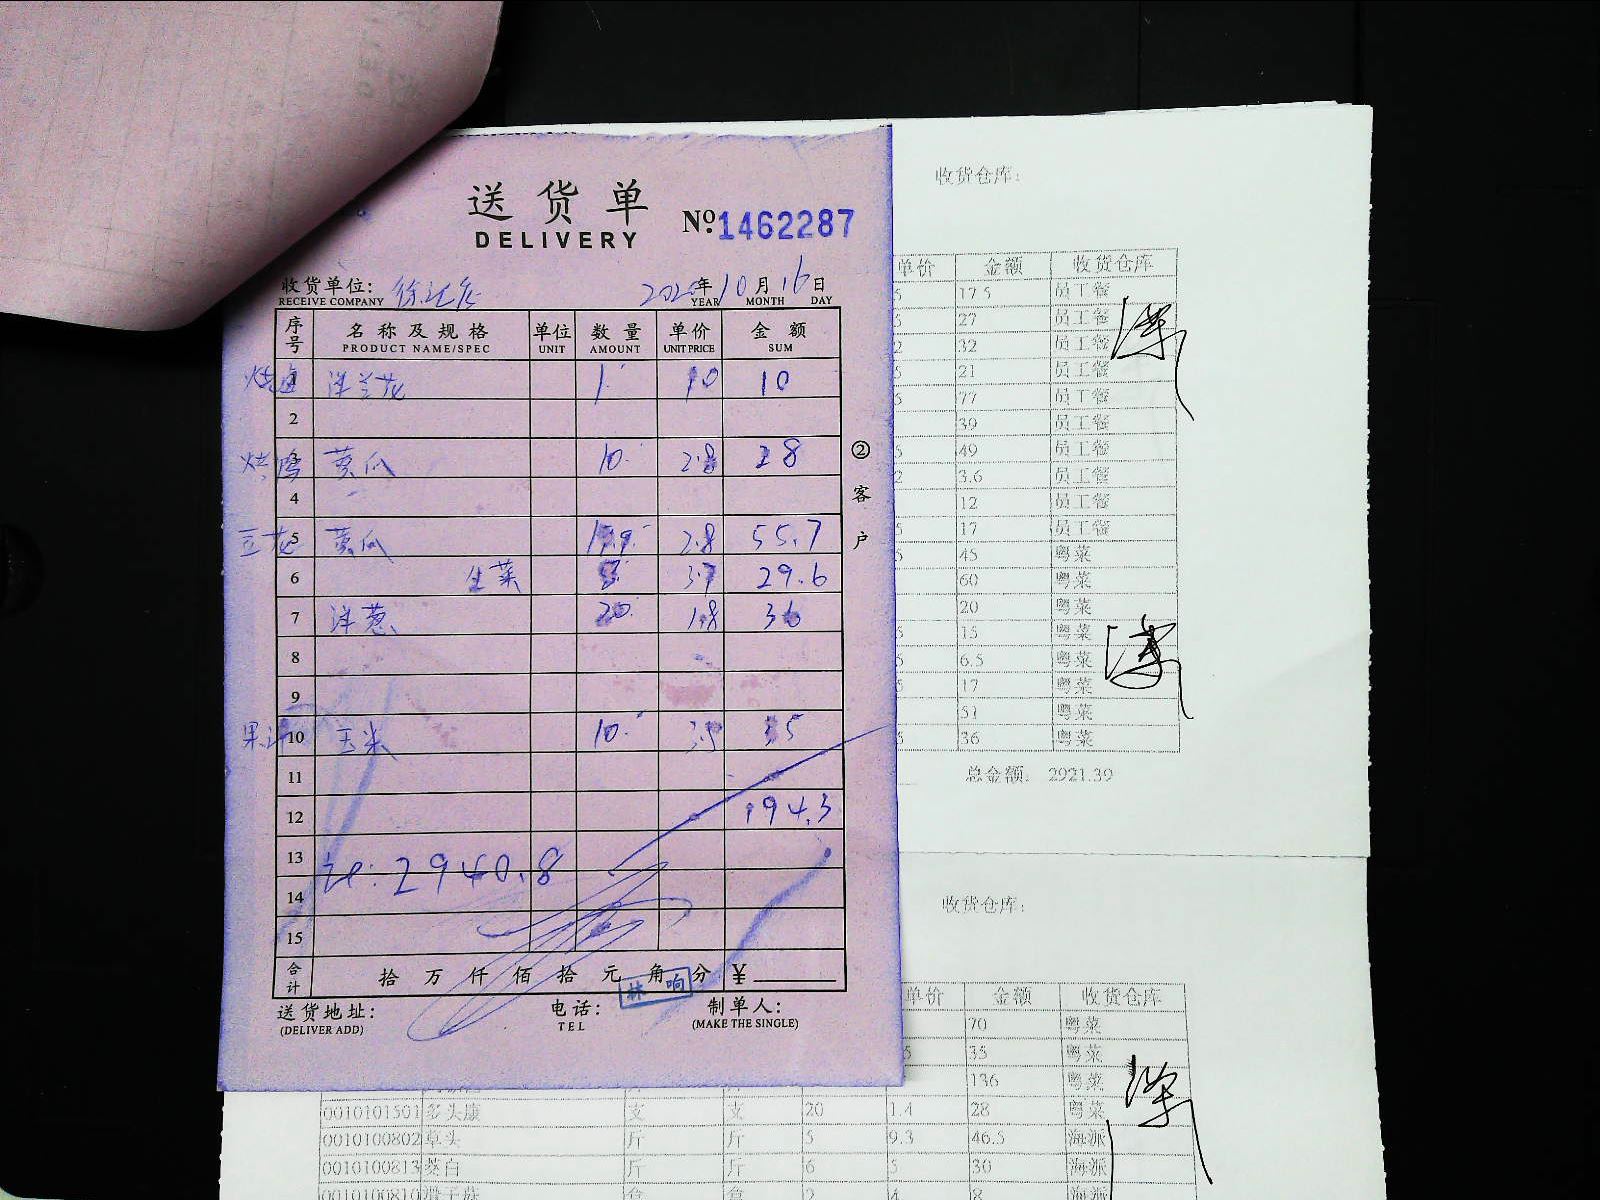 送货单
DELIVERY
№1462287
收货单位:
RECEIVE COMPANY
2020年10月16日
YEAR MONTH DAY
序号 名称及规格 单位 数量 单价 金额
PRODUCT NAME/SPEC UNIT AMOUNT UNIT PRICE SUM
洋兰花 1 10 10
2
黄瓜 10 2.8 28
4
5 黄瓜 19.9 2.8 55.7
6 生菜 8 3.7 29.6
7 洋葱 20 1.8 36
8
9
果汁 10 玉米 10 3.5 35
11
12 194.3
13
14
计:2940.8
15
合计 拾万仟佰拾元角分 ¥
林响
送货地址: 电话: 制单人:
(DELIVER ADD) TEL (MAKE THE SINGLE)
②客户
收货仓库:
单价 金额 收货仓库
5 17.5 员工餐
5 27 员工餐
2 32 员工餐
5 21 员工餐
5 77 员工餐
39 员工餐
5 49 员工餐
2 3.6 员工餐
12 员工餐
5 17 员工餐
5 45 粤菜
60 粤菜
20 粤菜
5 15 粤菜
5 6.5 粤菜
5 17 粤菜
51 粤菜
5 36 粤菜
总金额: 2921.39
收货仓库:
单价 金额 收货仓库
70 粤菜
5 35 粤菜
136 粤菜
0010101501 多头康 支 支 20 1.4 28 粤菜
0010100802 草头 斤 斤 5 9.3 46.5 海派
0010100813 茭白 斤 斤 6 5 30 海派
2 4 8 海派